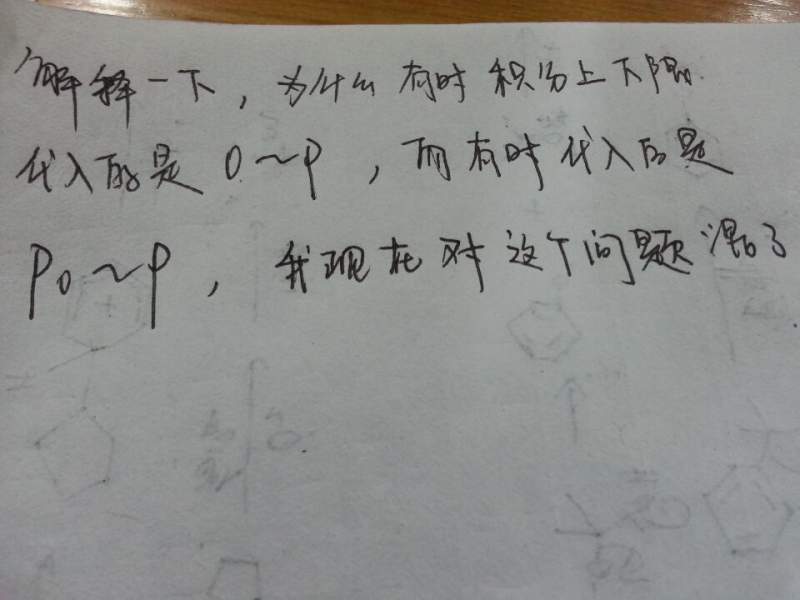 解释一下，为什么有时积分上下限
代入的是 0～p，而有时代入的是
p0～p，我现在对这个问题混了